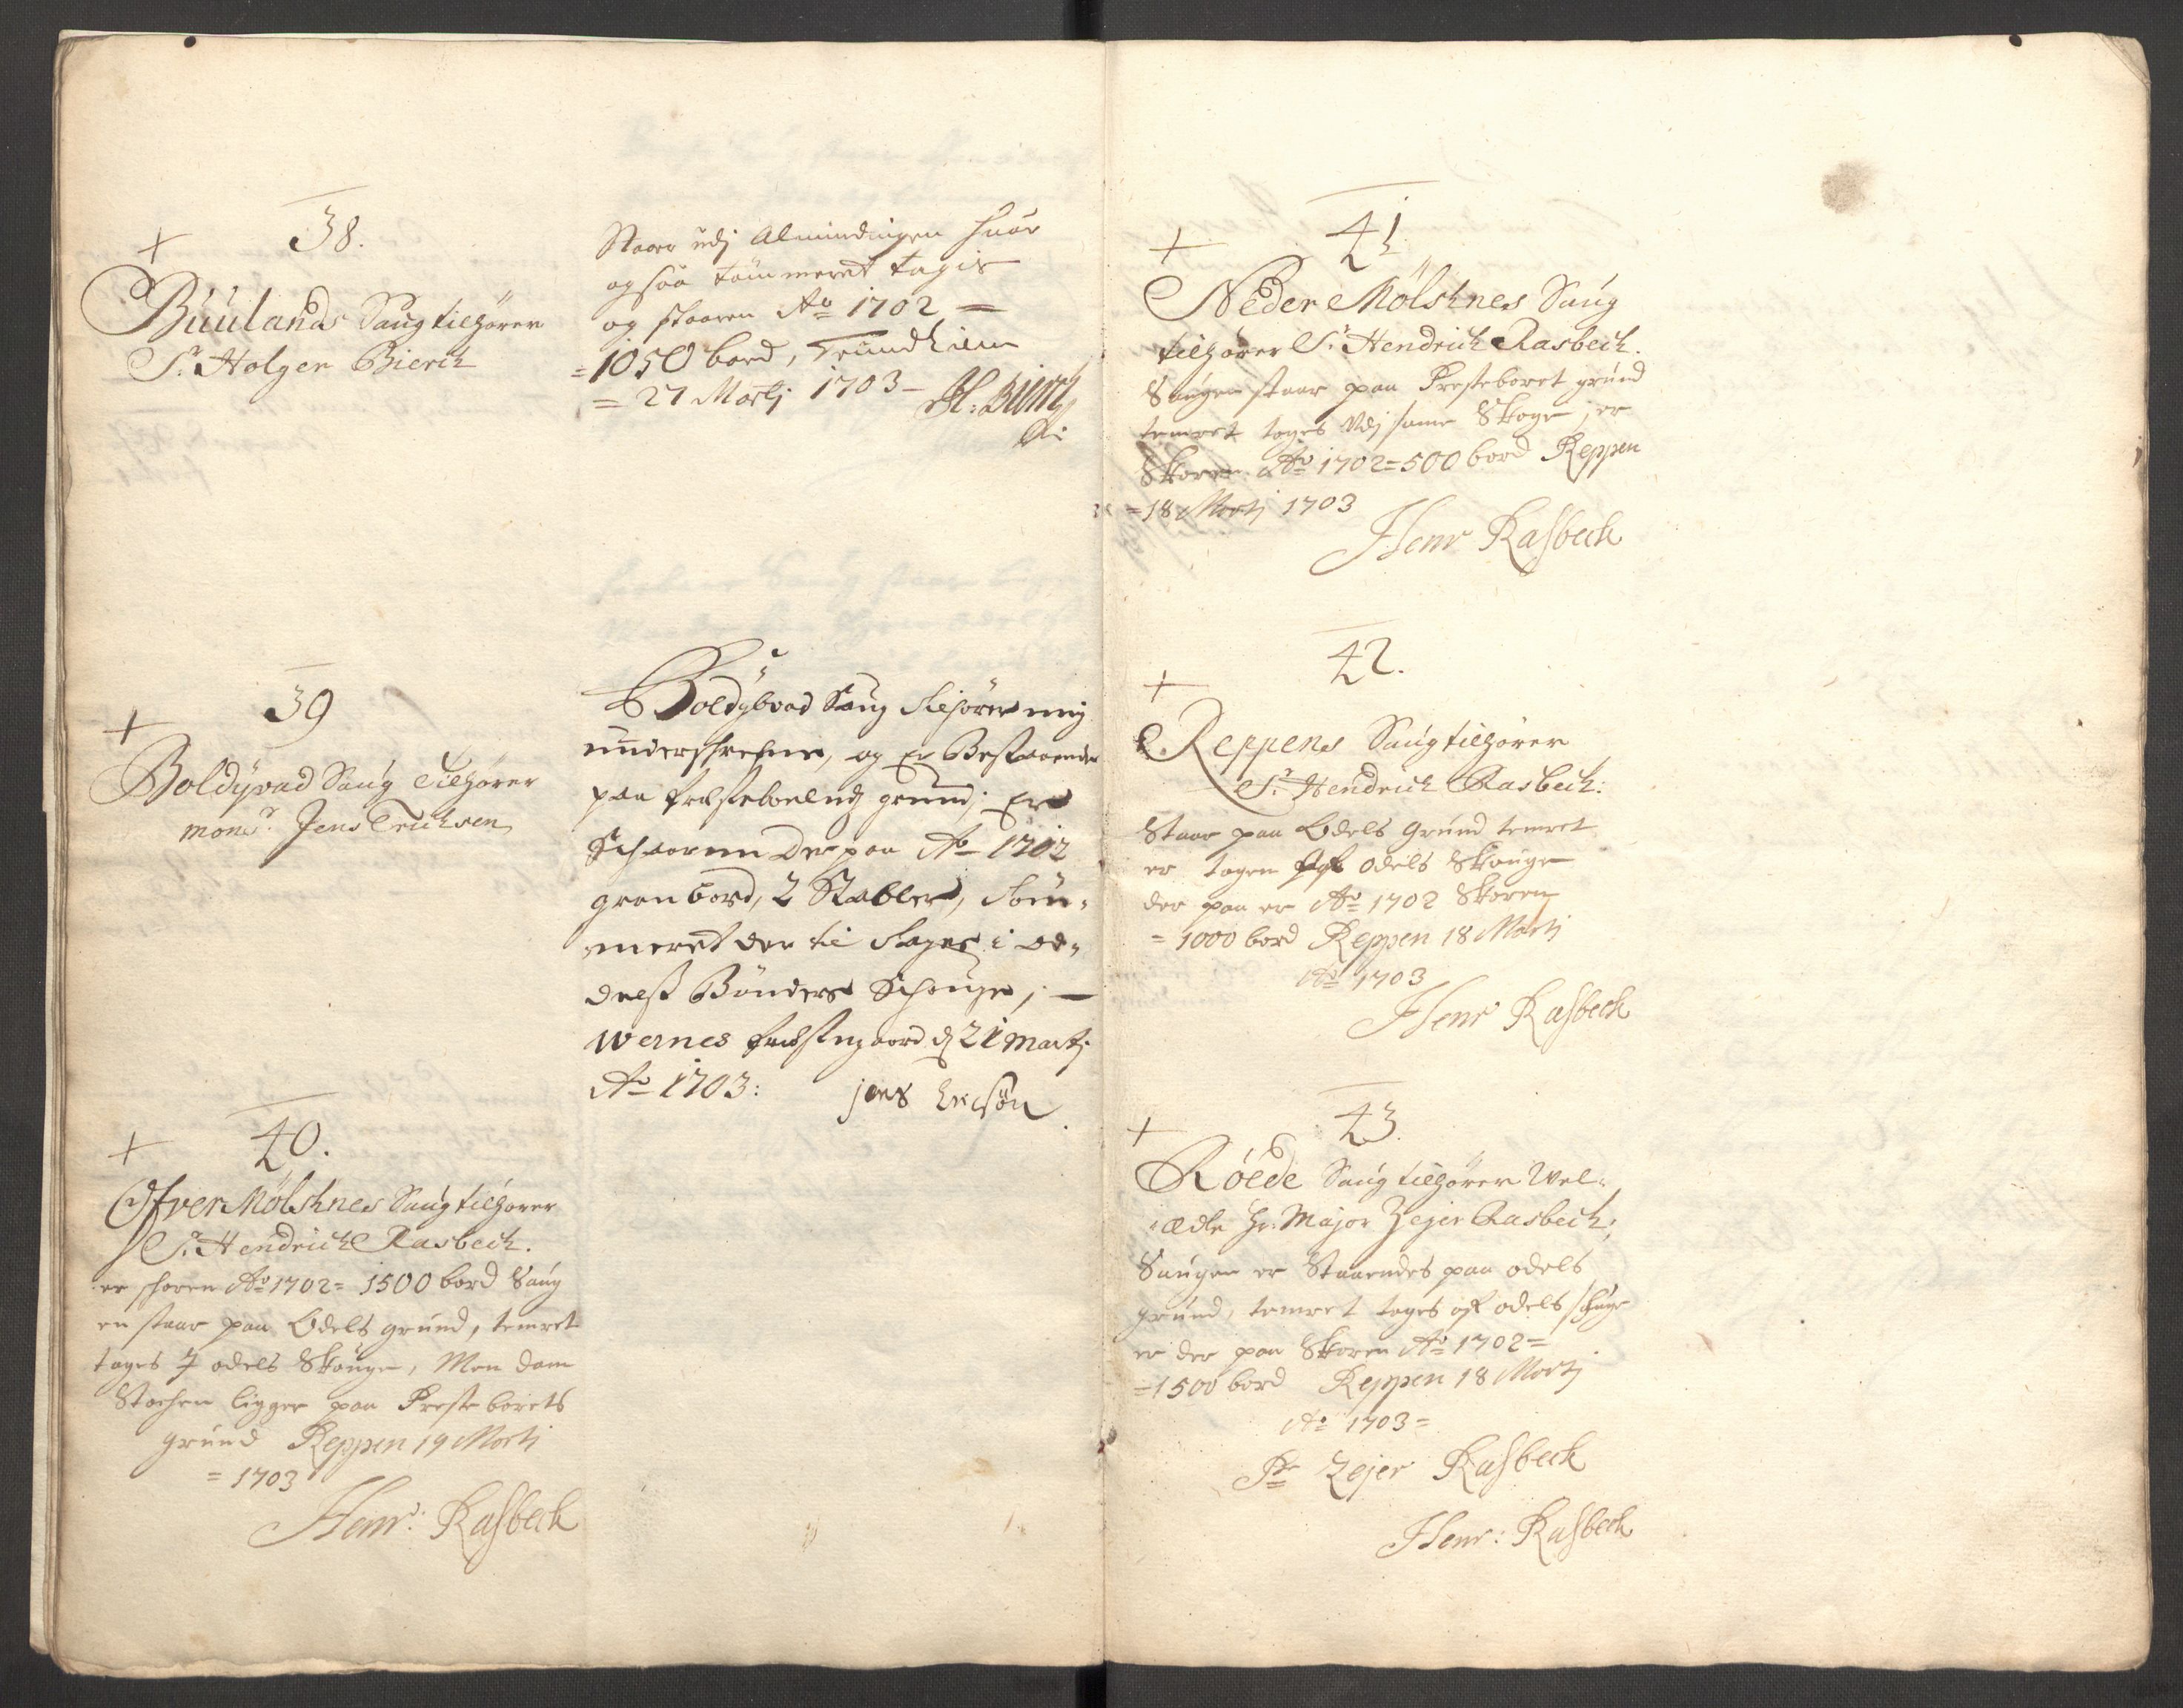 38.
+
Buulands Saug tilhører
Sr. Holger Bierch
Staar udj Almindingen huor
ogsaa tømmeret tagis
og skaaren Ao 1702 =
= 1050 bord, Trundhiem
= 27 Martj 1703 –
H: Bierch
39
+
Boldyvad Saug Tilhører
monsr. Jens Erichsen
Boldybvad Saug tilhører mig
underschrefne, og Er Bestaaende
paa præstebolens grund; Er
Schaaren der paa Ao 1702
gran bord, 2 Stabler, Tøm-
meret der til tages i o-
delss Bønders Schouge, —
Wernes præstegaard d 21 Martj
Ao 1703: jens Ericsøn
40.
+
Ofver Mølshnes Saug tilhører
Sr. Hendrich Rasbech.
er skoren Ao 1702 = 1500 bord Saug
en staar paa Odels grund, temret
tages J odels Skouge, Men dam
Stochen ligger paa Preste borets
grund Reppen 19 Martj
= 1703
Henr: Rasbech
41
+
Neder Mølshnes Saug
tilhører Sr. Hendrich Rasbech.
Saugen staar paa Presteboret grund
temret toges Udj same Skoge, er
Skoren Ao 1702 = 500 bord Reppen
= 18 Martj 1703
Henr Rasbech
42.
+
Reppens Saug tilhører
Sr. Hendrich Rasbech:
Staar paa Odels Grund temret
er tagen af odels Skouge
der paa er Ao 1702 Skoren
= 1000 bord Reppen 18 Martj
Ao 1703
Henr Rasbech
43.
+
Røede Saug tilhører Wel-
ædle Hr. Major Zejer Rasbech,
Saugen er Staaendes paa odels
grund, temret toges af odels skuge
er der paa Skoren Ao 1702 =
= 1500 bord Reppen 18 Martj
Ao 1703 =
Zejer Rasbech
Henr: Rasbech